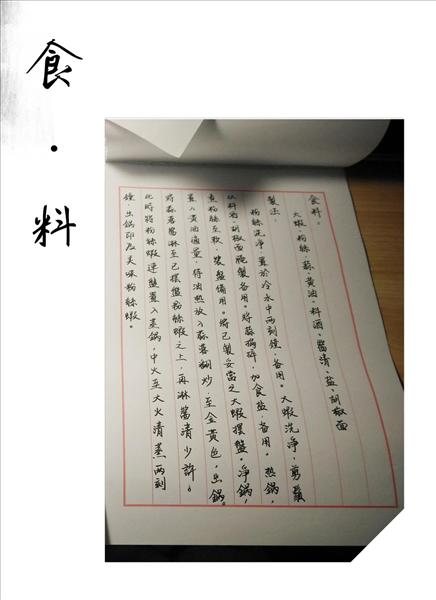 食·料
食料。
大蝦、粉絲、蒜、黄油、料酒、醬清、盐、胡椒面
製法:
粉絲洗净,置於冷水中两刻鐘,备用。大蝦洗净,剪鬚
以料酒、胡椒面腌製备用。將蒜搗碎,加食盐,备用。热鍋,
煮粉絲至軟,裝盤備用。將已製妥當之大蝦摆盤。净鍋,
置入黄油適量,待油热放入蒜蓉翻炒,至金黄色,出鍋。
將蒜蓉醬淋至已摆盤粉絲蝦之上,再淋醬清少許。
此時將粉絲蝦連盤置入蒸鍋,中火至大火清蒸两刻
鐘,出鍋即成美味粉絲蝦。